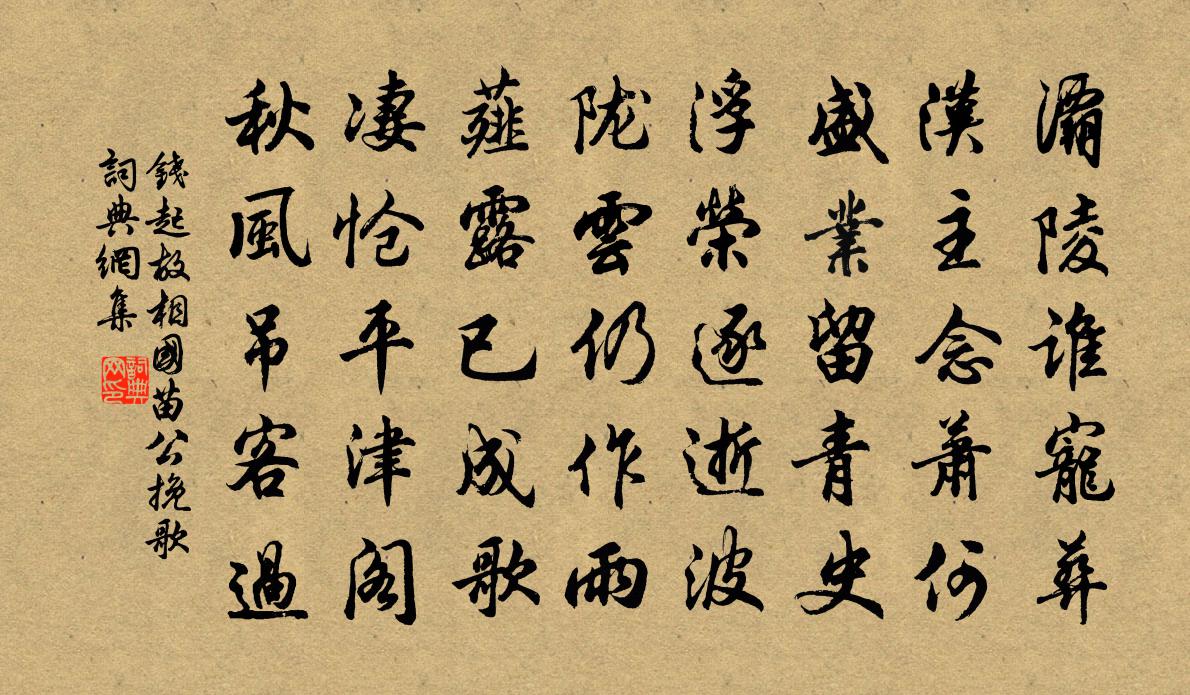 灞陵誰寵葬
漢主念蕭何
盛業留青史
浮榮逐逝波
陇雲仍作雨
薤露已成歌
凄怆平津閣
秋風吊客過
錢起故相國苗公挽歌
詞典網集
詞典
网印